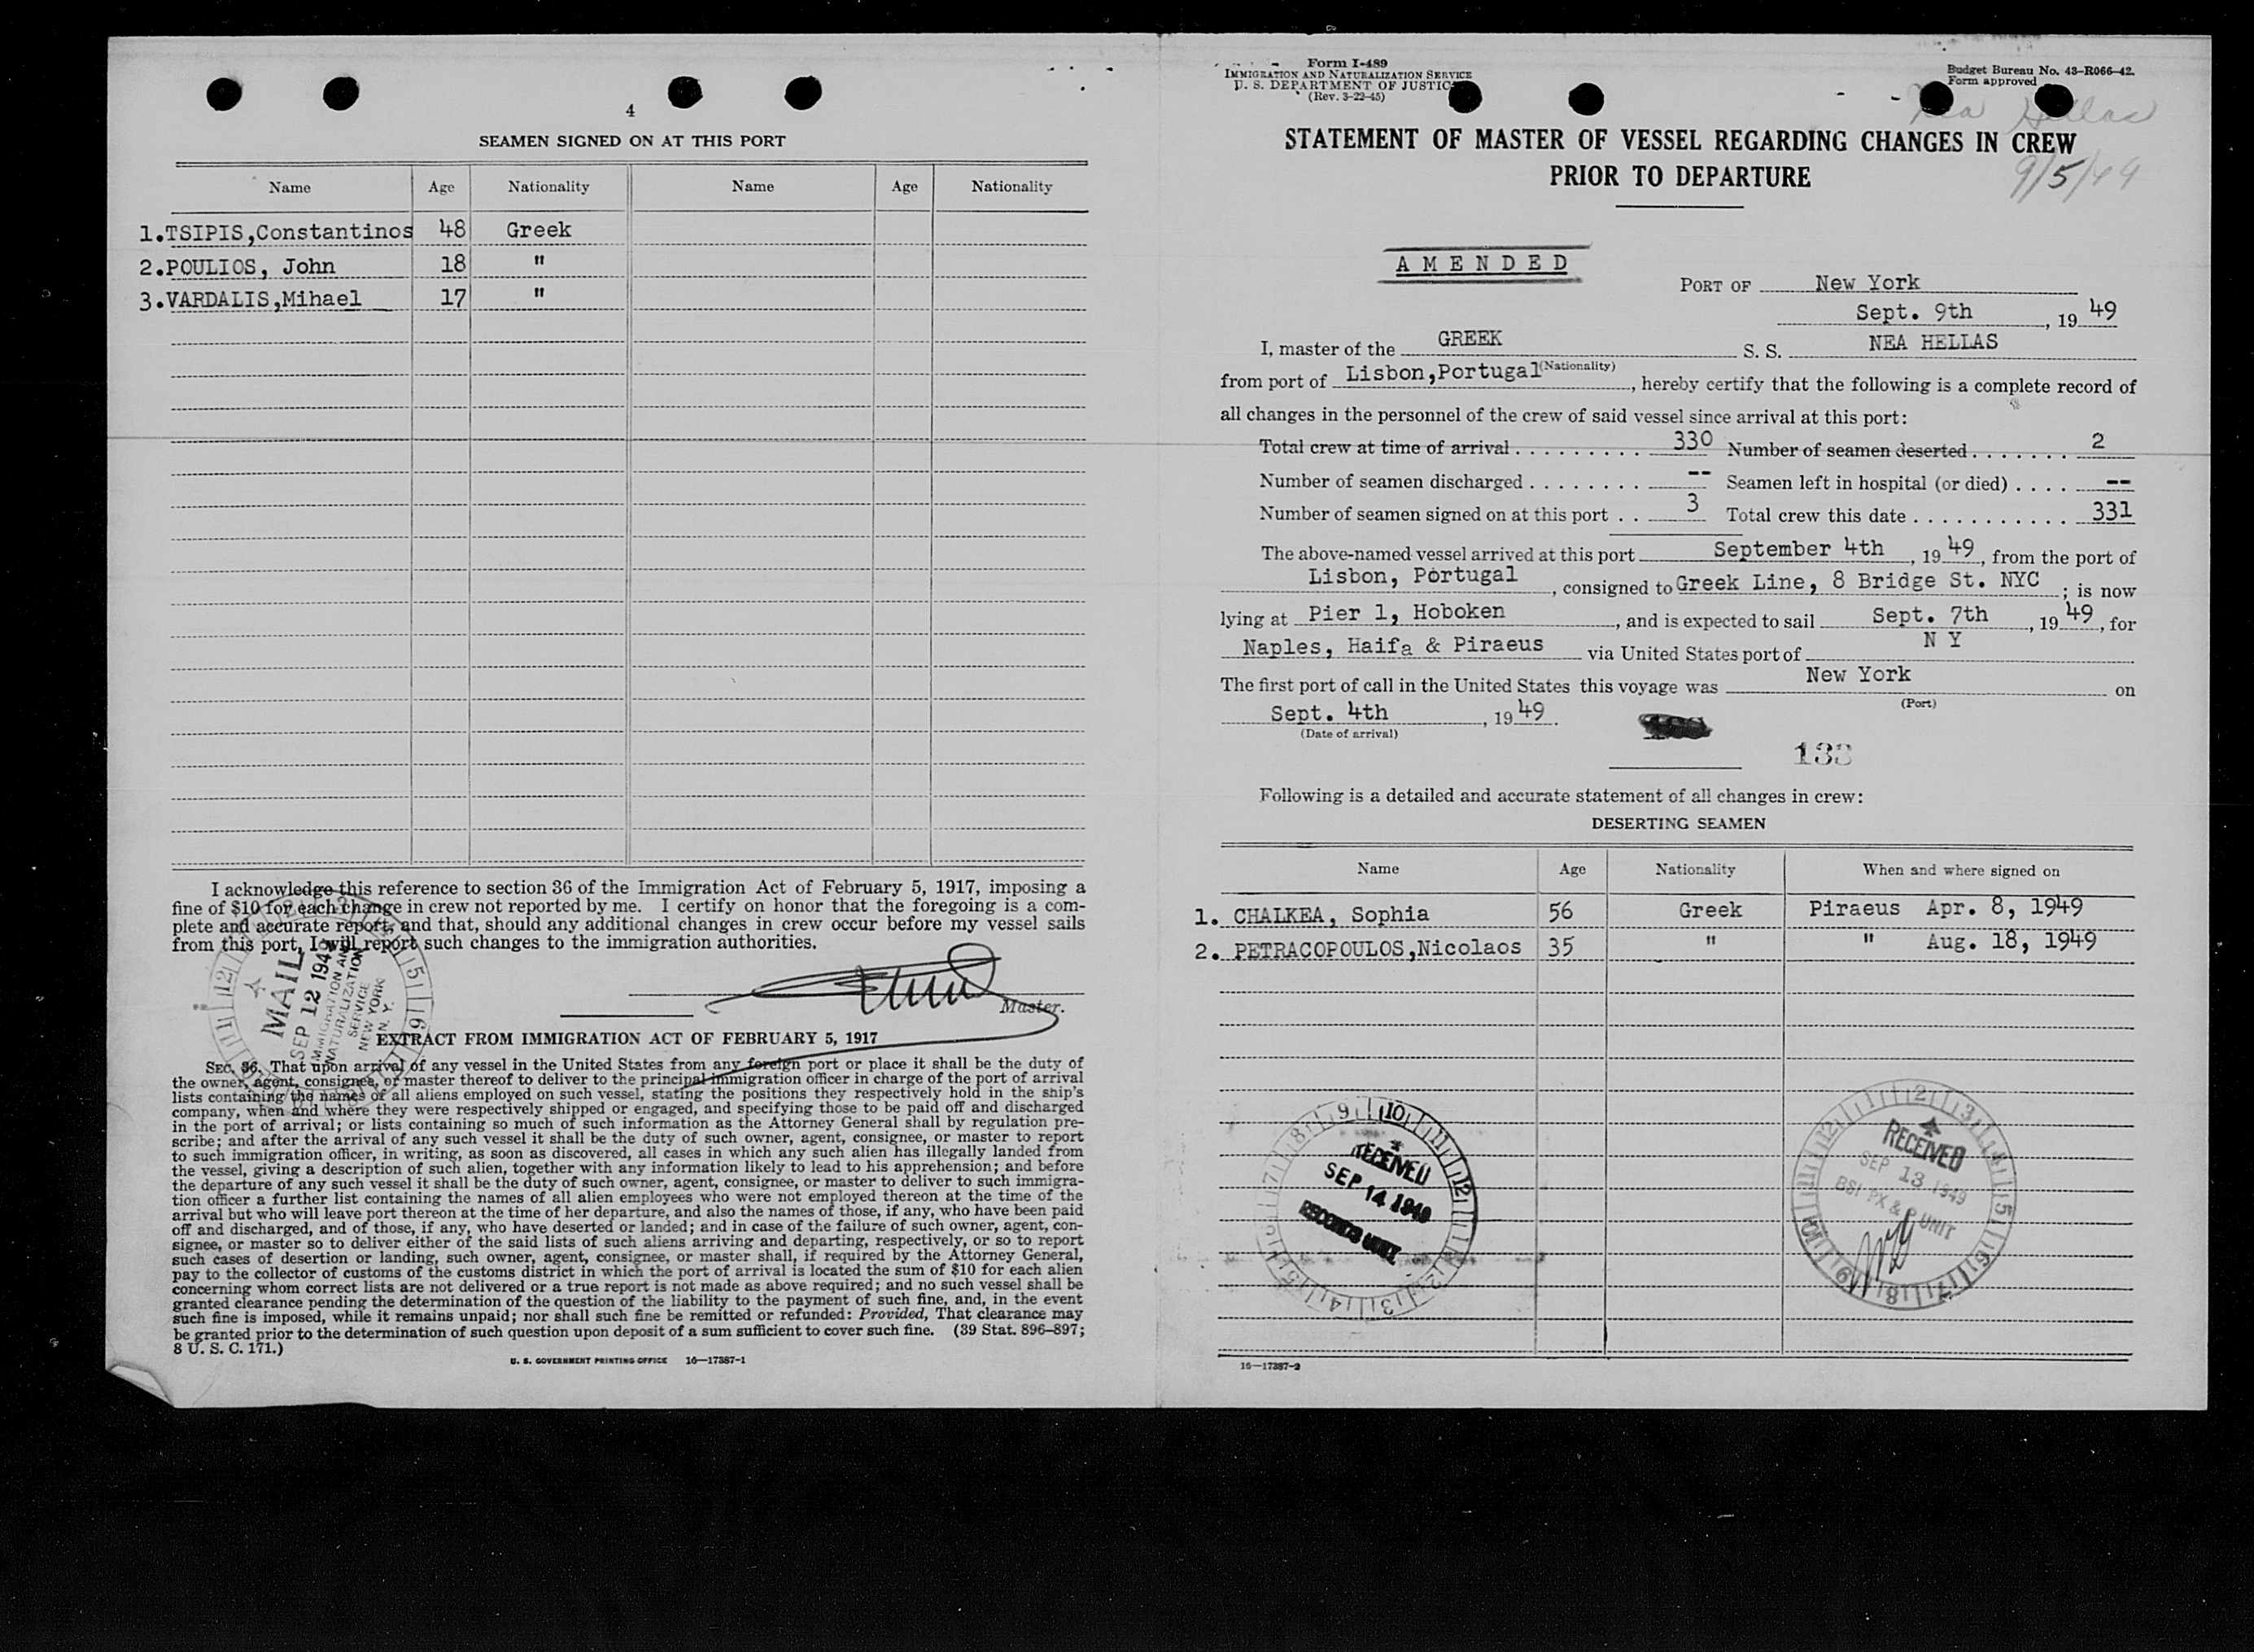 4
SEAMEN SIGNED ON AT THIS PORT
Name Age Nationality Name Age Nationality
1.TSIPIS,Constantinos 48 Greek
2.POULIOS, John 18 "
3.VARDALIS,Mihael 17 "
I acknowledge this reference to section 36 of the Immigration Act of February 5, 1917, imposing a
fine of $10 for each change in crew not reported by me. I certify on honor that the foregoing is a com-
plete and accurate report, and that, should any additional changes in crew occur before my vessel sails
from this port, I will report such changes to the immigration authorities.
Master.
MAIL
SEP 12 1949
IMMIGRATION AND
NATURALIZATION
SERVICE
NEW YORK
N. Y.
EXTRACT FROM IMMIGRATION ACT OF FEBRUARY 5, 1917
SEC. 36. That upon arrival of any vessel in the United States from any foreign port or place it shall be the duty of
the owner, agent, consignee, or master thereof to deliver to the principal immigration officer in charge of the port of arrival
lists containing the names of all aliens employed on such vessel, stating the positions they respectively hold in the ship's
company, when and where they were respectively shipped or engaged, and specifying those to be paid off and discharged
in the port of arrival; or lists containing so much of such information as the Attorney General shall by regulation pre-
scribe; and after the arrival of any such vessel it shall be the duty of such owner, agent, consignee, or master to report
to such immigration officer, in writing, as soon as discovered, all cases in which any such alien has illegally landed from
the vessel, giving a description of such alien, together with any information likely to lead to his apprehension; and before
the departure of any such vessel it shall be the duty of such owner, agent, consignee, or master to deliver to such immigra-
tion officer a further list containing the names of all alien employees who were not employed thereon at the time of the
arrival but who will leave port thereon at the time of her departure, and also the names of those, if any, who have been paid
off and discharged, and of those, if any, who have deserted or landed; and in case of the failure of such owner, agent, con-
signee, or master so to deliver either of the said lists of such aliens arriving and departing, respectively, or so to report
such cases of desertion or landing, such owner, agent, consignee, or master shall, if required by the Attorney General,
pay to the collector of customs of the customs district in which the port of arrival is located the sum of $10 for each alien
concerning whom correct lists are not delivered or a true report is not made as above required; and no such vessel shall be
granted clearance pending the determination of the question of the liability to the payment of such fine, and, in the event
such fine is imposed, while it remains unpaid; nor shall such fine be remitted or refunded: Provided, That clearance may
be granted prior to the determination of such question upon deposit of a sum sufficient to cover such fine. (39 Stat. 896–897;
8 U. S. C. 171.)
U. S. GOVERNMENT PRINTING OFFICE 16—17387-1
Form I-489
IMMIGRATION AND NATURALIZATION SERVICE
U. S. DEPARTMENT OF JUSTICE
(Rev. 3-22-45)
Budget Bureau No. 43-R066-42.
Form approved
Nea Hellas
9/5/49
STATEMENT OF MASTER OF VESSEL REGARDING CHANGES IN CREW
PRIOR TO DEPARTURE
AMENDED
PORT OF New York
Sept. 9th, 19 49
I, master of the GREEK S. S. NEA HELLAS
(Nationality)
from port of Lisbon,Portugal, hereby certify that the following is a complete record of
all changes in the personnel of the crew of said vessel since arrival at this port:
Total crew at time of arrival 330 Number of seamen deserted 2
Number of seamen discharged -- Seamen left in hospital (or died) --
Number of seamen signed on at this port 3 Total crew this date 331
The above-named vessel arrived at this port September 4th, 19 49, from the port of
Lisbon, Portugal, consigned to Greek Line, 8 Bridge St. NYC; is now
lying at Pier 1, Hoboken, and is expected to sail Sept. 7th, 19 49, for
Naples, Haifa & Piraeus via United States port of N Y
The first port of call in the United States this voyage was New York on
(Port)
Sept. 4th, 19 49.
(Date of arrival)
133
Following is a detailed and accurate statement of all changes in crew:
DESERTING SEAMEN
Name Age Nationality When and where signed on
1. CHALKEA, Sophia 56 Greek Piraeus Apr. 8, 1949
2. PETRACOPOULOS,Nicolaos 35 " " Aug. 18, 1949
RECEIVED
SEP 14 1949
RECORDS UNIT
RECEIVED
SEP 13 1949
BSI PX & P UNIT
16—17387-2